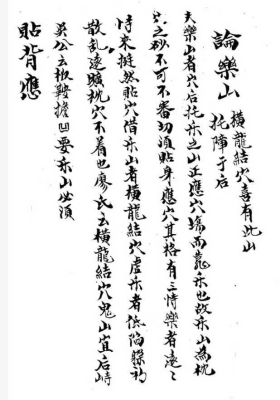 論樂山
橫龍結穴喜有此山
托障于后
夫樂山者穴后托乐之山正應穴塲而龍乐也故乐山為枕
穴之砂不可不審切須貼身應穴其格有三特樂者遠々
特来挺然貼穴借乐山者橫龍結穴虛乐者低陷躲
散乱遠曠枕穴不着也廖氏云橫龍結穴鬼山宜后峙
吴公云板鞍擔凹要乐山必須
貼背應